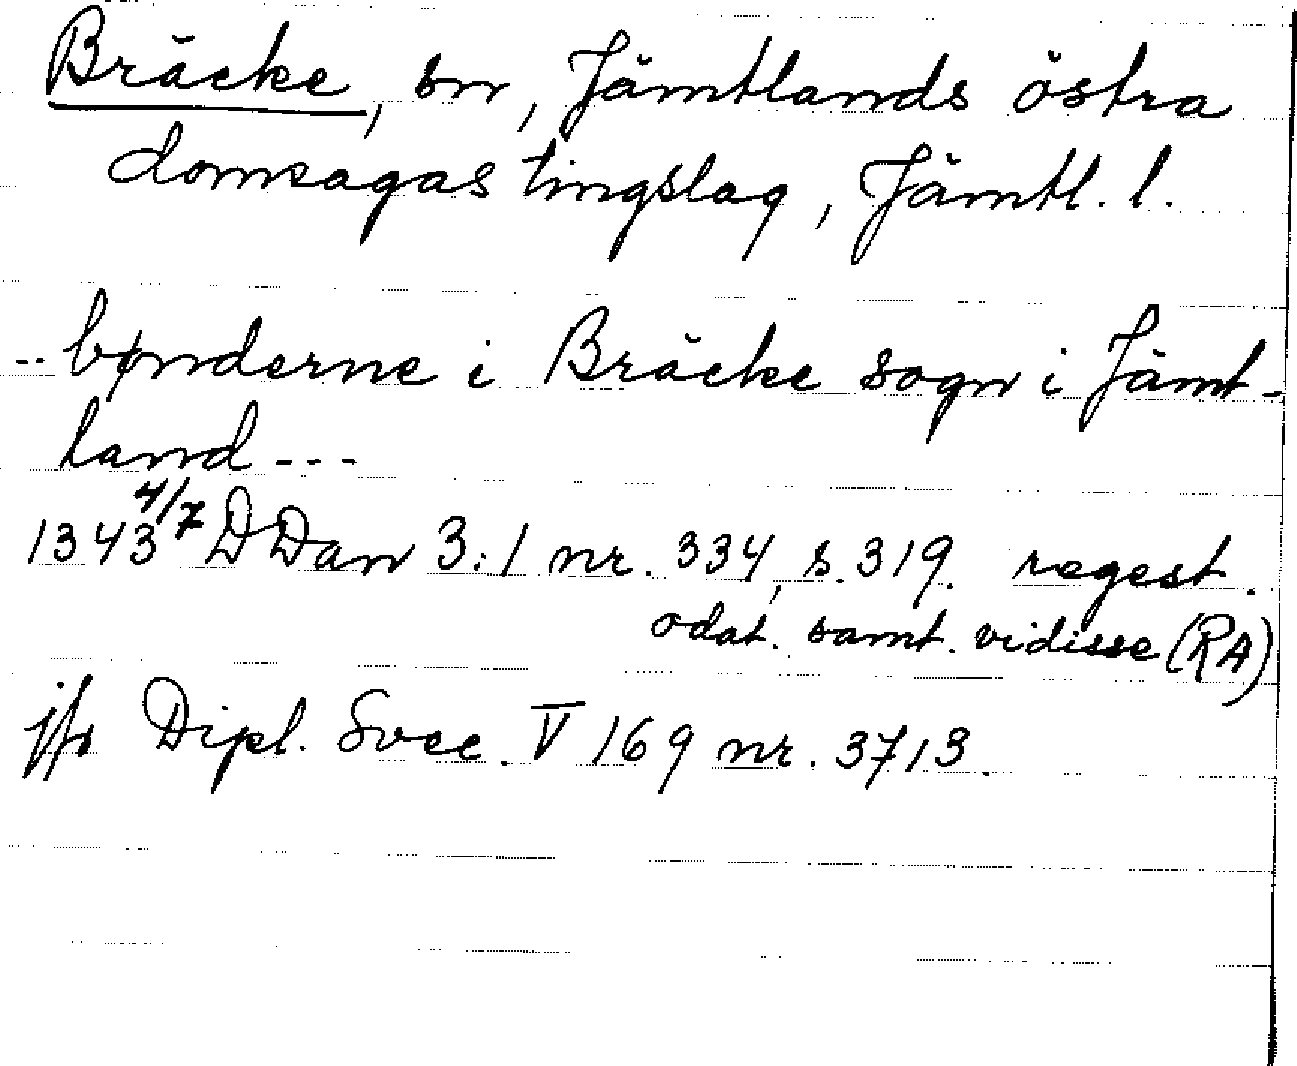 Bräcke, sn, Jämtlands östra
domsagas tingslag, Jämtl. l.
-- bønderne i Bräcke sogn i Jämt-
land ---
1343 4/7 DDan 3:1 nr. 334, s. 319. regest.
odat. samt. vidisse (RA)
jfr Dipl. Svec. V 169 nr. 3713.